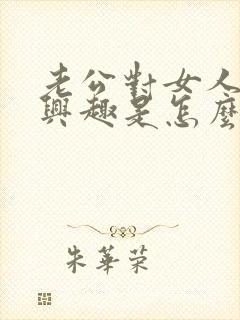 老公對女人
興趣是怎麼
朱華荣